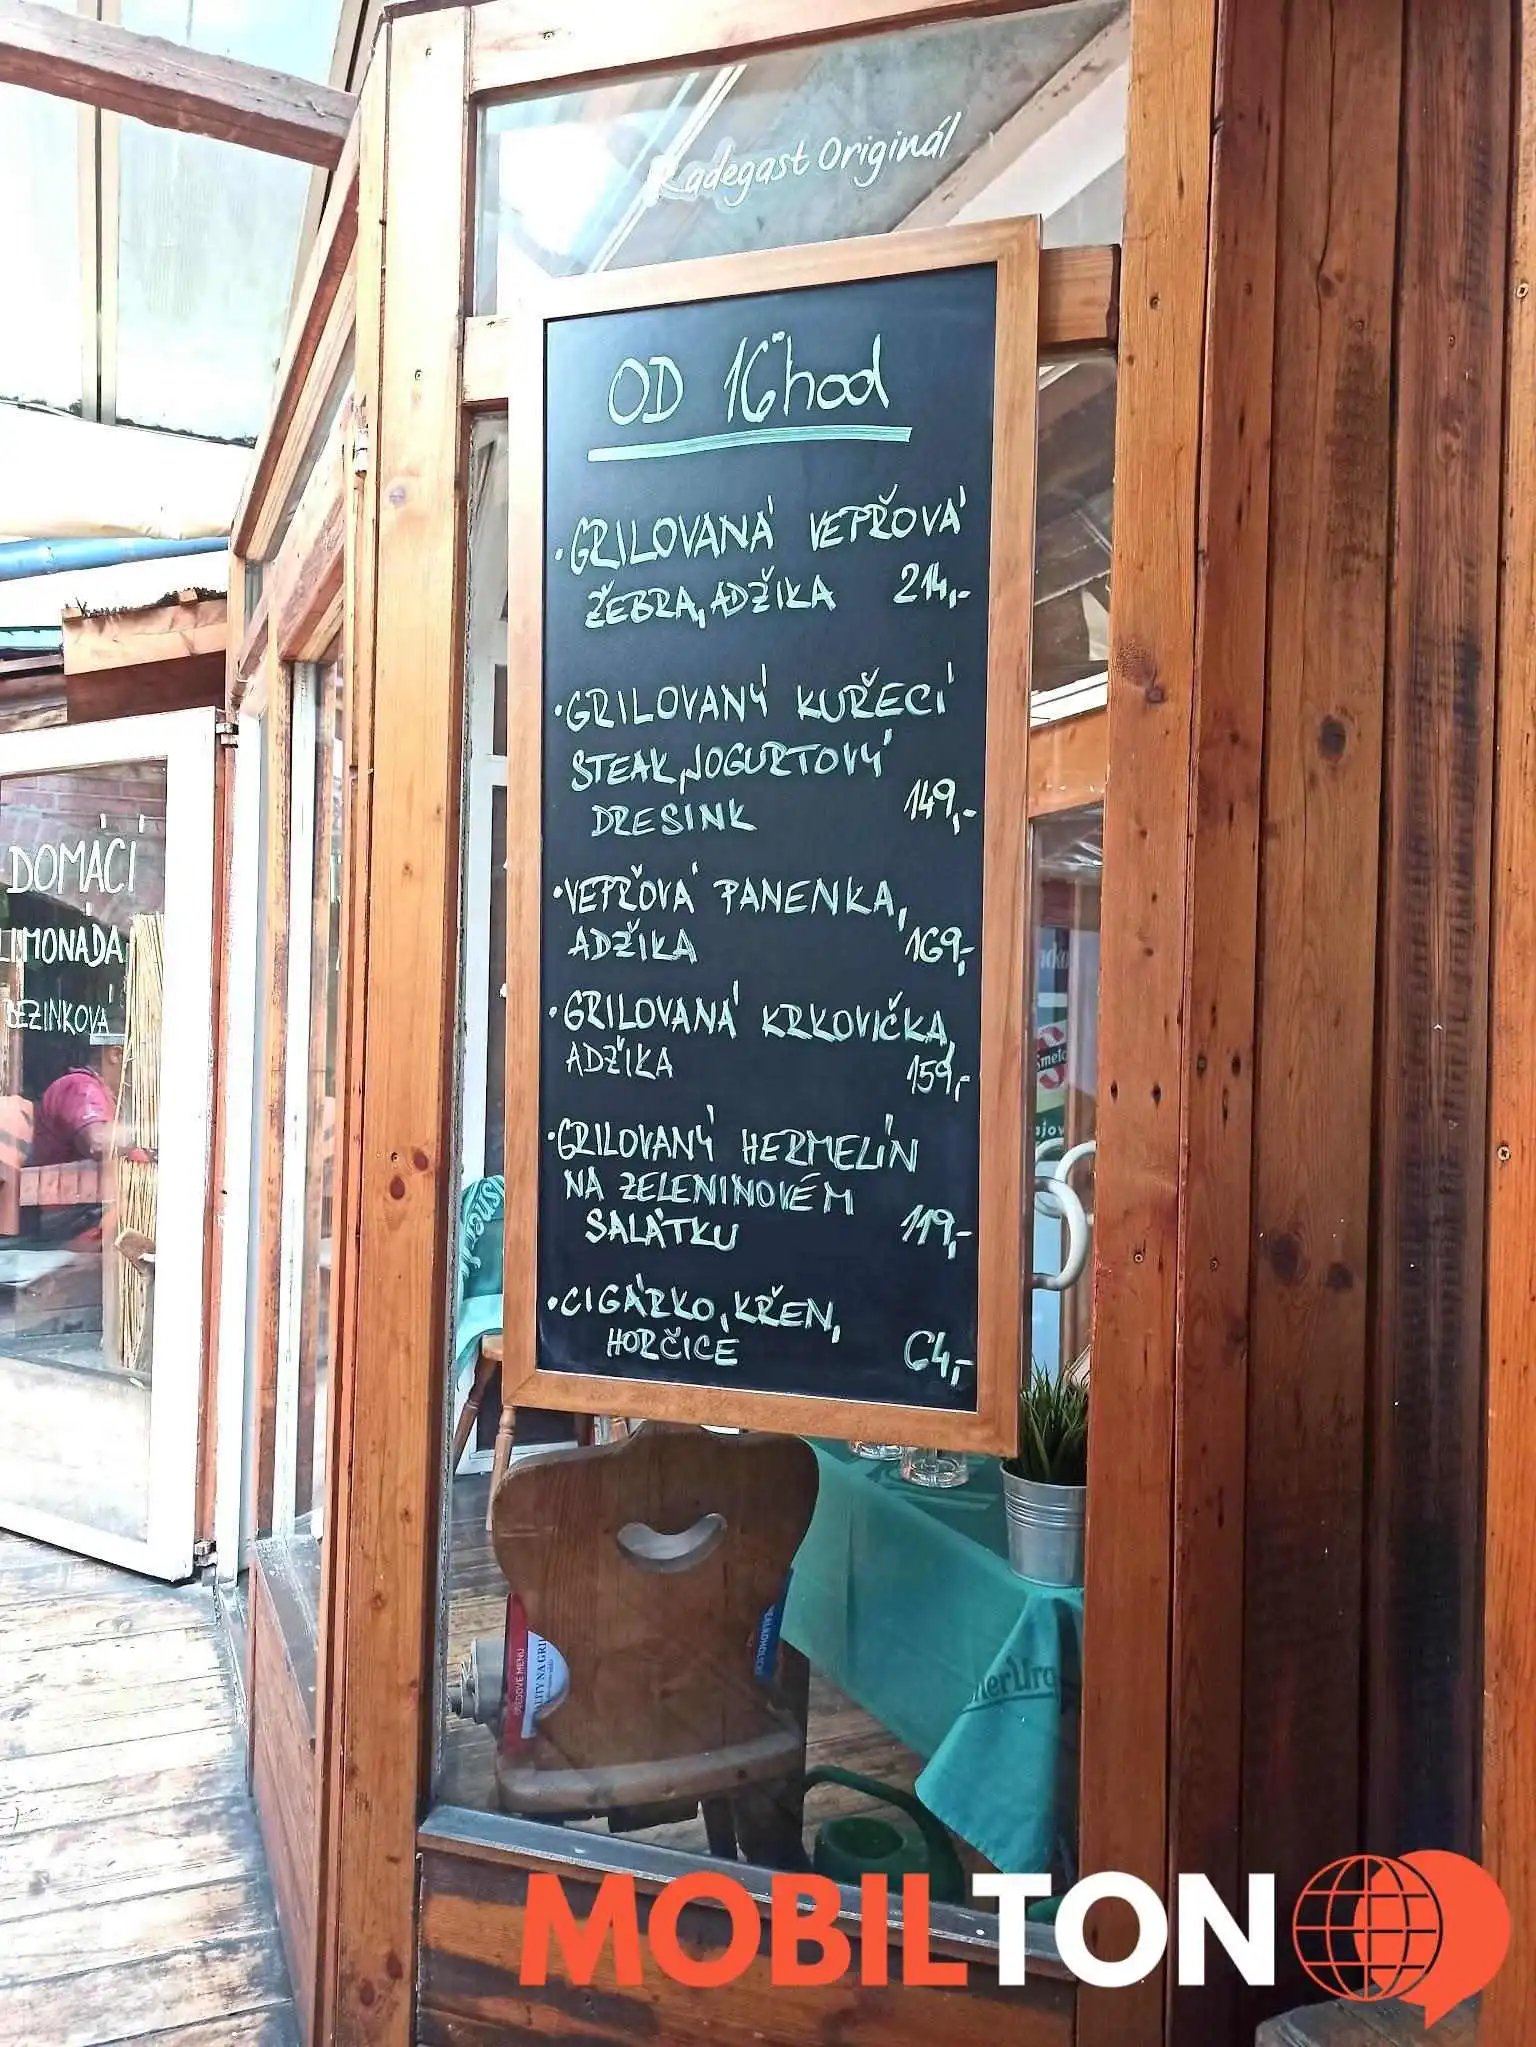 Radegast Originál
OD 16°°hod
• GRILOVANÁ VEPŘOVÁ
ŽEBRA, ADŽIKA 214,-
• GRILOVANÝ KUŘECÍ
STEAK, JOGURTOVÝ
DRESINK 149,-
• VEPŘOVÁ PANENKA,
ADŽIKA 169,-
• GRILOVANÁ KRKOVIČKA,
ADŽIKA 159,-
• GRILOVANÝ HERMELÍN
NA ZELENINOVÉM
SALÁTKU 119,-
• CIGÁRKO, KŘEN,
HORČICE 64,-
DOMÁCÍ
LIMONÁDA
BEZINKOVÁ
MOBILTON